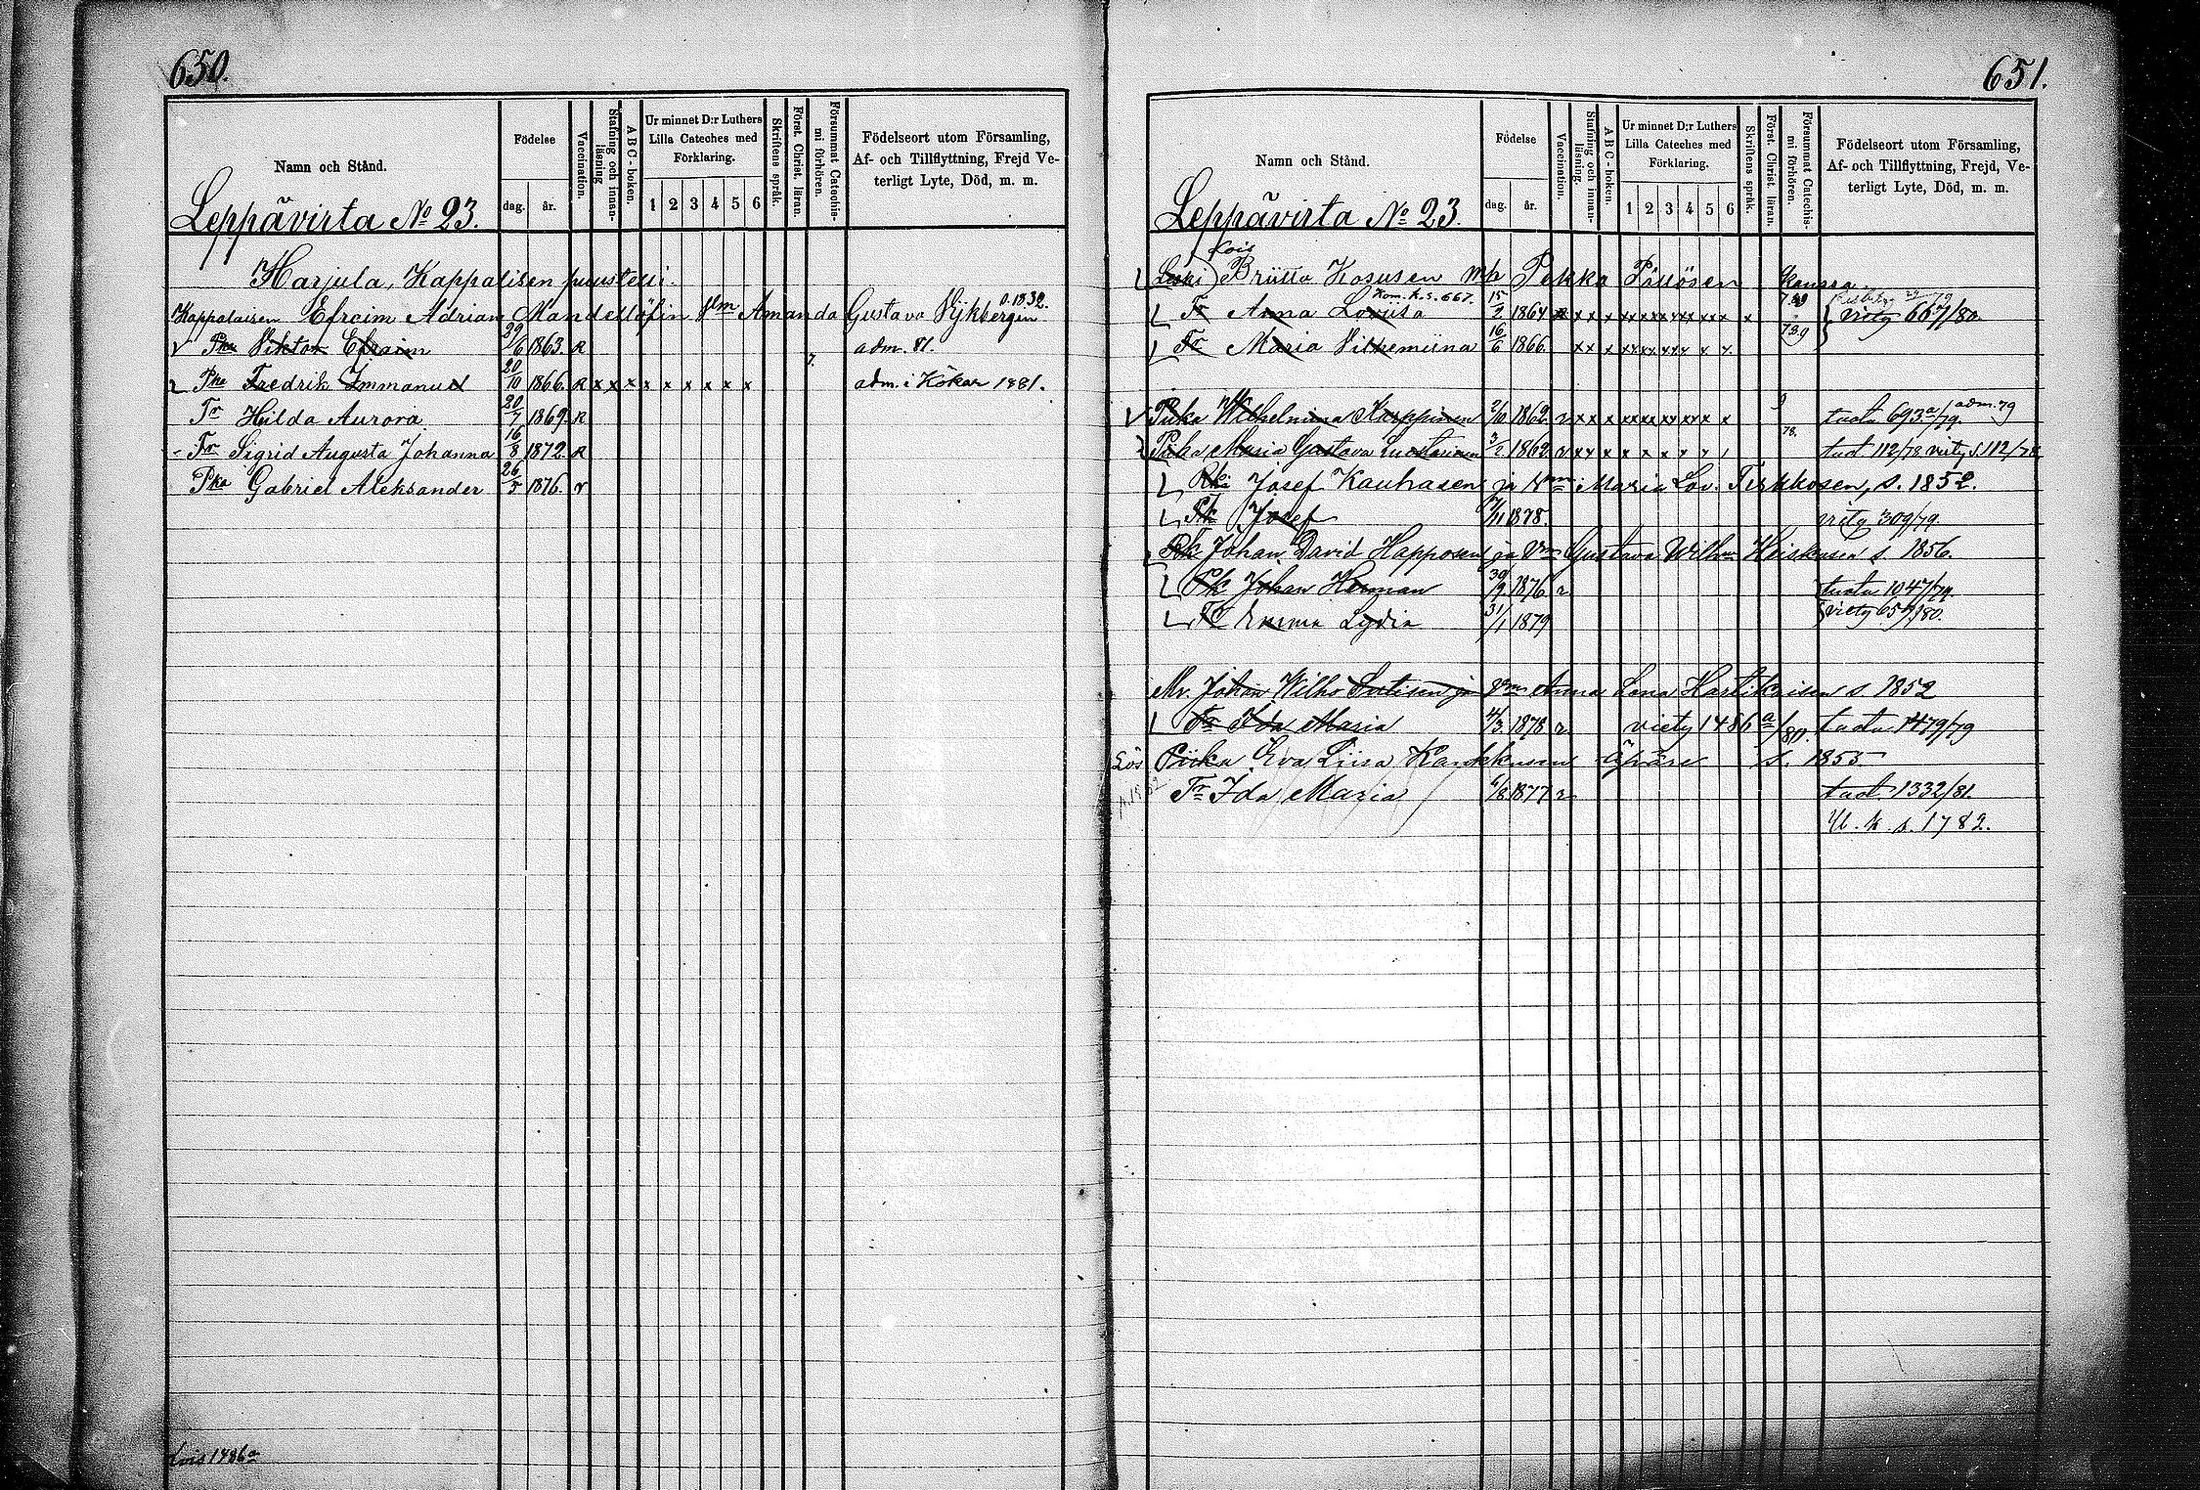 650.
Namn och Stånd.
Födelse
dag.
år.
Vaccination.
Stafning och innan-läsning
ABC-boken.
Ur minnet D:r Luthers
Lilla Cateches med
Förklaring.
1 2 3 4 5 6
Skriftens språk.
Först. Christ. läran.
Försummat Catechis-mi förhören.
Födelseort utom Församling,
Af- och Tillflyttning, Frejd Ve-
terligt Lyte, Död, m. m.
Leppävirta No 23.
Harjula, Kappalaisen puustelli.
Kappalaisen Efraim Adrian Mandellöfin Vm Amanda Gustava Vijkbergin s. 1832.
Pka Viktor Efraim 29/6 1863. R adm. 81.
Pka Fredrik Immanuel 20/10 1866. R x x x x x x x x x adm. i Kökar 1881.
Tr Hilda Aurora 20/7 1869. R
Tr Sigrid Augusta Johanna 16/8 1872. R
Pka Gabriel Aleksander 26/5 1876. r
651.
Namn och Stånd.
Födelse
dag.
år.
Vaccination.
Stafning och innan-läsning.
ABC-boken.
Ur minnet D:r Luthers
Lilla Cateches med
Förklaring.
1 2 3 4 5 6
Skriftens språk.
Först. Christ. läran.
Försummat Catechis-mi förhören.
Födelseort utom Församling,
Af- och Tillflyttning, Frejd, Ve-
terligt Lyte, Död, m. m.
Leppävirta No 23.
Lois
Leski Briitta Kosusen mb Pekka Pöllösen kanssa
Kom. k. s. 667.
Tr Anna Loviisa 15/2 1864 viety 667/80.
Tr Maria Vilhemiina 16/6 1866.
Piika Wilhelmina Karppinen 2/10 1862. tuotu 693a/79. adm. 79
Piika Maria Gustava 3/2 1862 tuot 112/78 viety s. 112/78
Rki Josef Kauhasen ja Vmo Maria Lov. Tirkkosen, s. 1852.
Pk Josef 7/11 1878. viety 309/79.
Rk Johan David Happosen ja Vm Gustava Wilhm Heiskasen s. 1856.
Pk Johan Herman 30/9 1876 r tuotu 1047/79.
viety 654/80.
Tr Emma Lydia 31/1 1879
Mv. Johan Wilho ja Vmo Anna Lena Hartikaisen s. 1852
Tr Ida Maria 4/3 1878 r viety 1486a/80. tuotu 1479/79
Lös Piika Eva Liisa Karkkusen Äpäre s. 1855
Tr Ida Maria 6/8 1877 r tuot. 1332/81.
Ul. k. s. 1782.
Lois 1486a